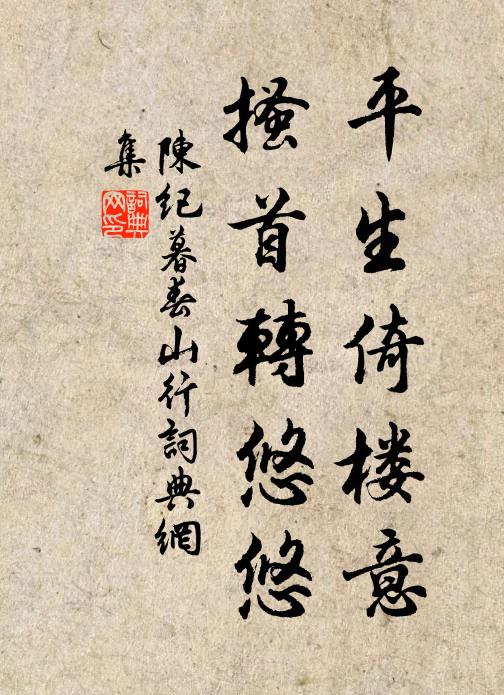 平生倚楼意
搔首轉悠悠
陳纪暮春山行詞典網
集
詞典
网印